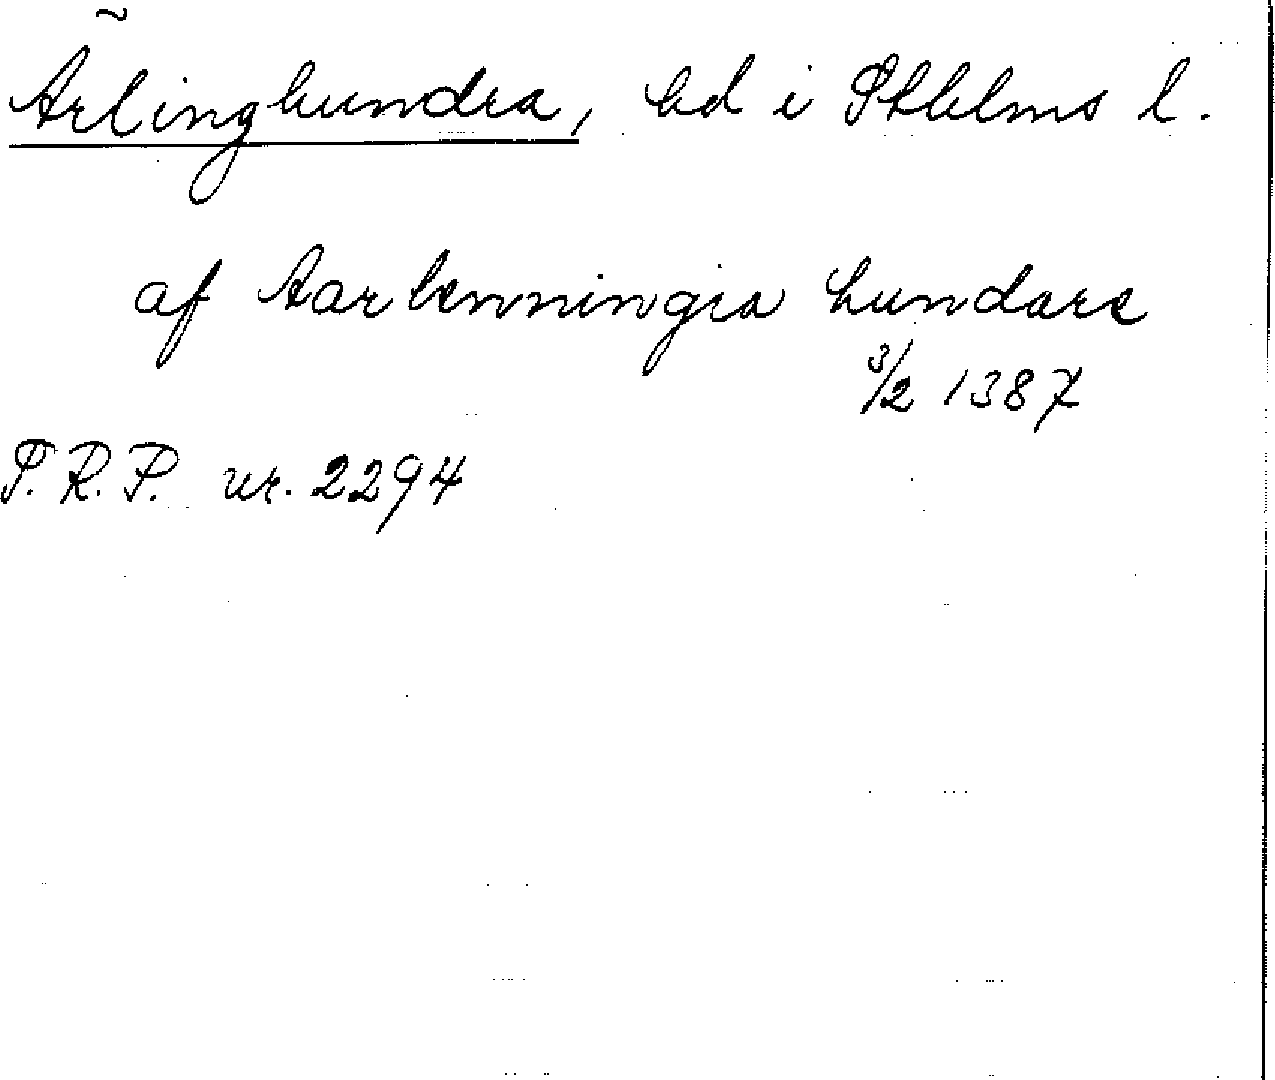 Ärlinghundra, hd i Sthlms l.
af Aarlenningra hundare
3/2 1387
S.R.P. nr. 2294